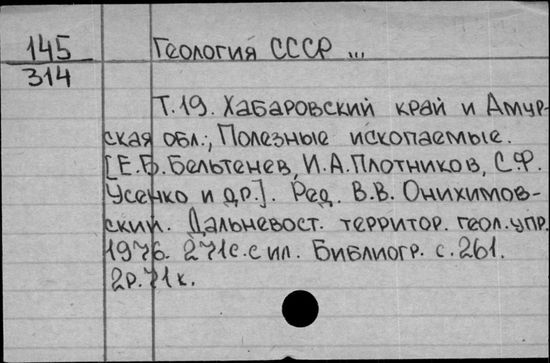 145
314
Геология СССР ...
Т.19. Хабаровский край и Амур-
ская обл.; Полезные ископаемые.
[Е.Б. Бельтенев, И.А. Плотников, С.Ф.
Усенко и др.]. Ред. В.В. Онихимов-
ский. Дальневост. территор. геол. упр.
1976. 271с. с ил. Библиогр. с. 261.
2р. 71к.